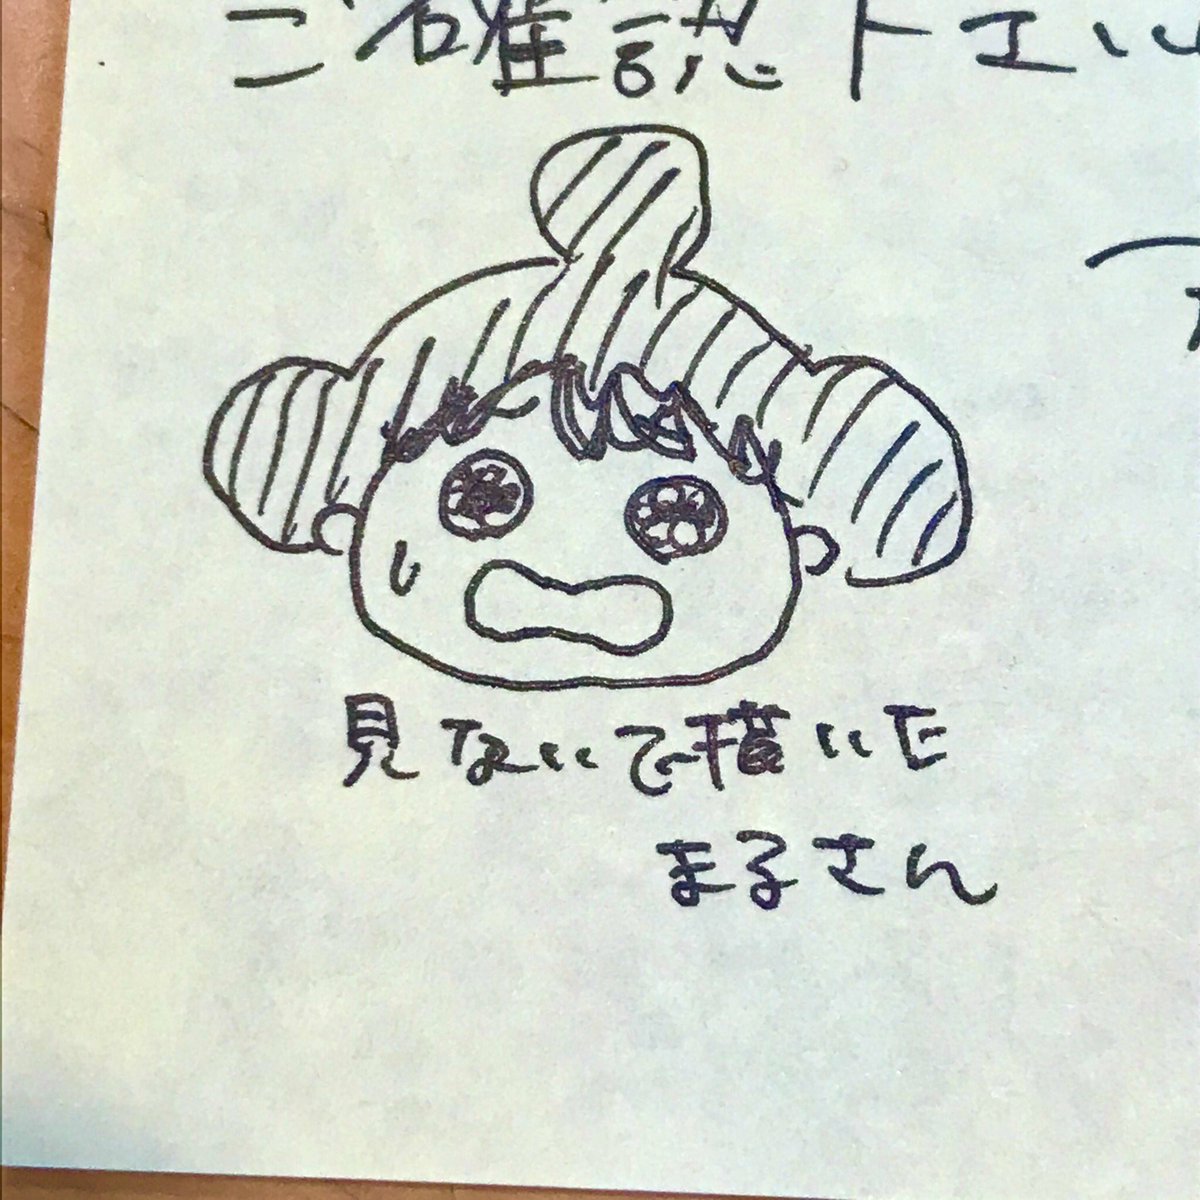 ご確認下さい
見ないで描いた
まるさん